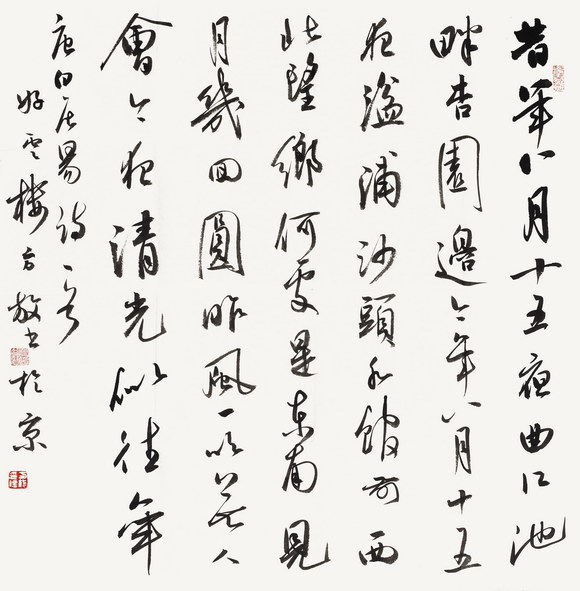 昔年八月十五夜曲江池
畔杏園邊今年八月十五
夜湓浦沙頭水館前西
北望鄉何處是東南見
月幾回圓昨風一吹無人
會今夜清光似往年
唐白居易詩一首
好雲樓方放書於京